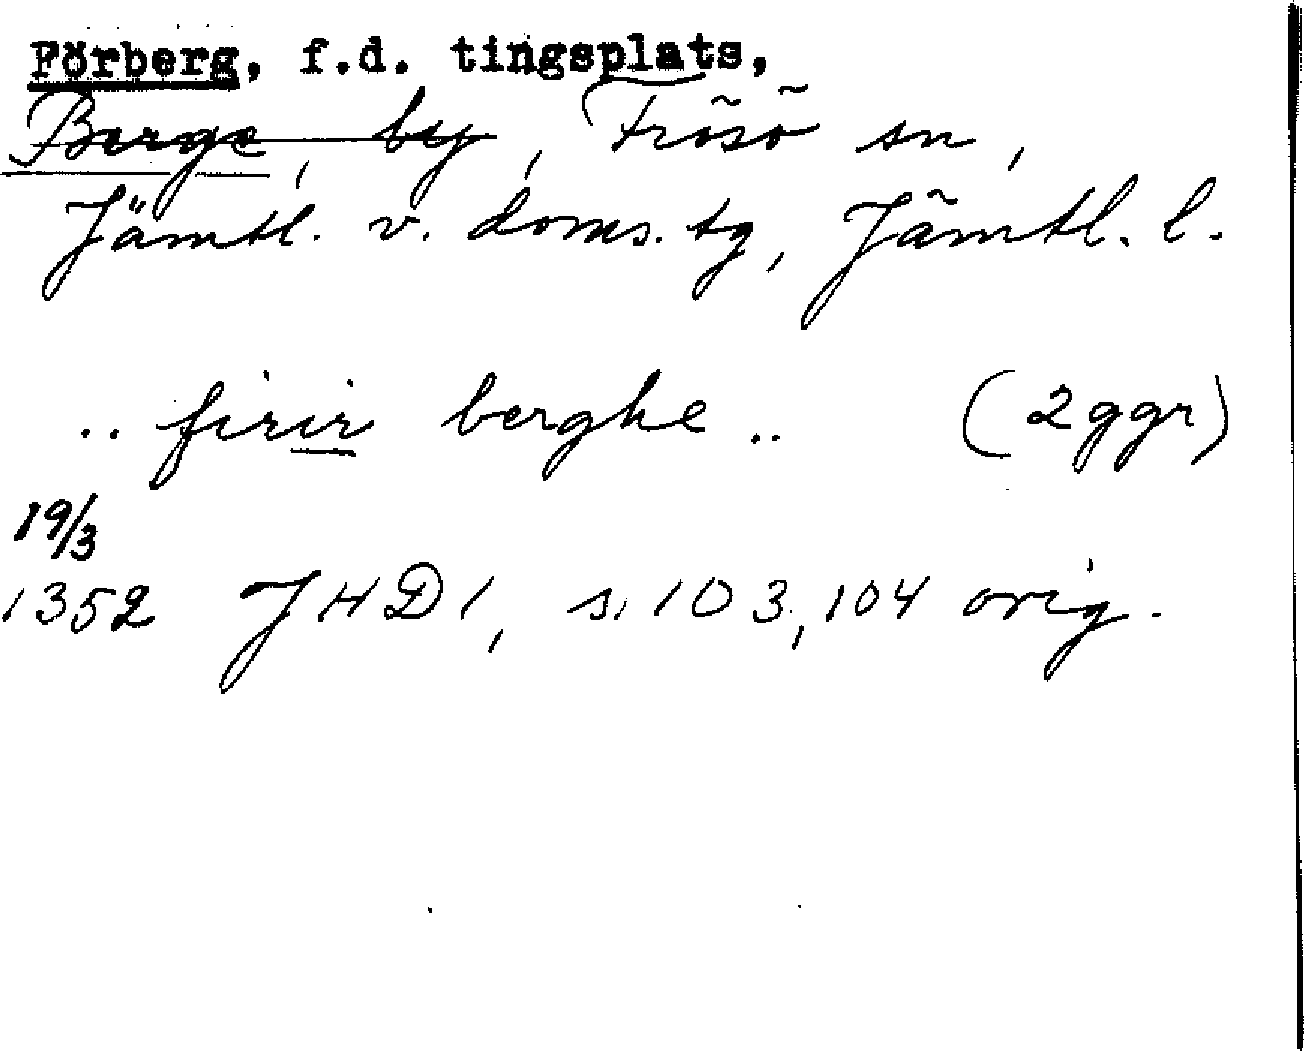 Förberg, f.d. tingsplats,
Berge, by, Frösö sn,
Jämtl. v. doms. tg, Jämtl. l.
.. firir berghe .. (2ggr)
19/3
1352 JHD1, s. 103, 104 orig.